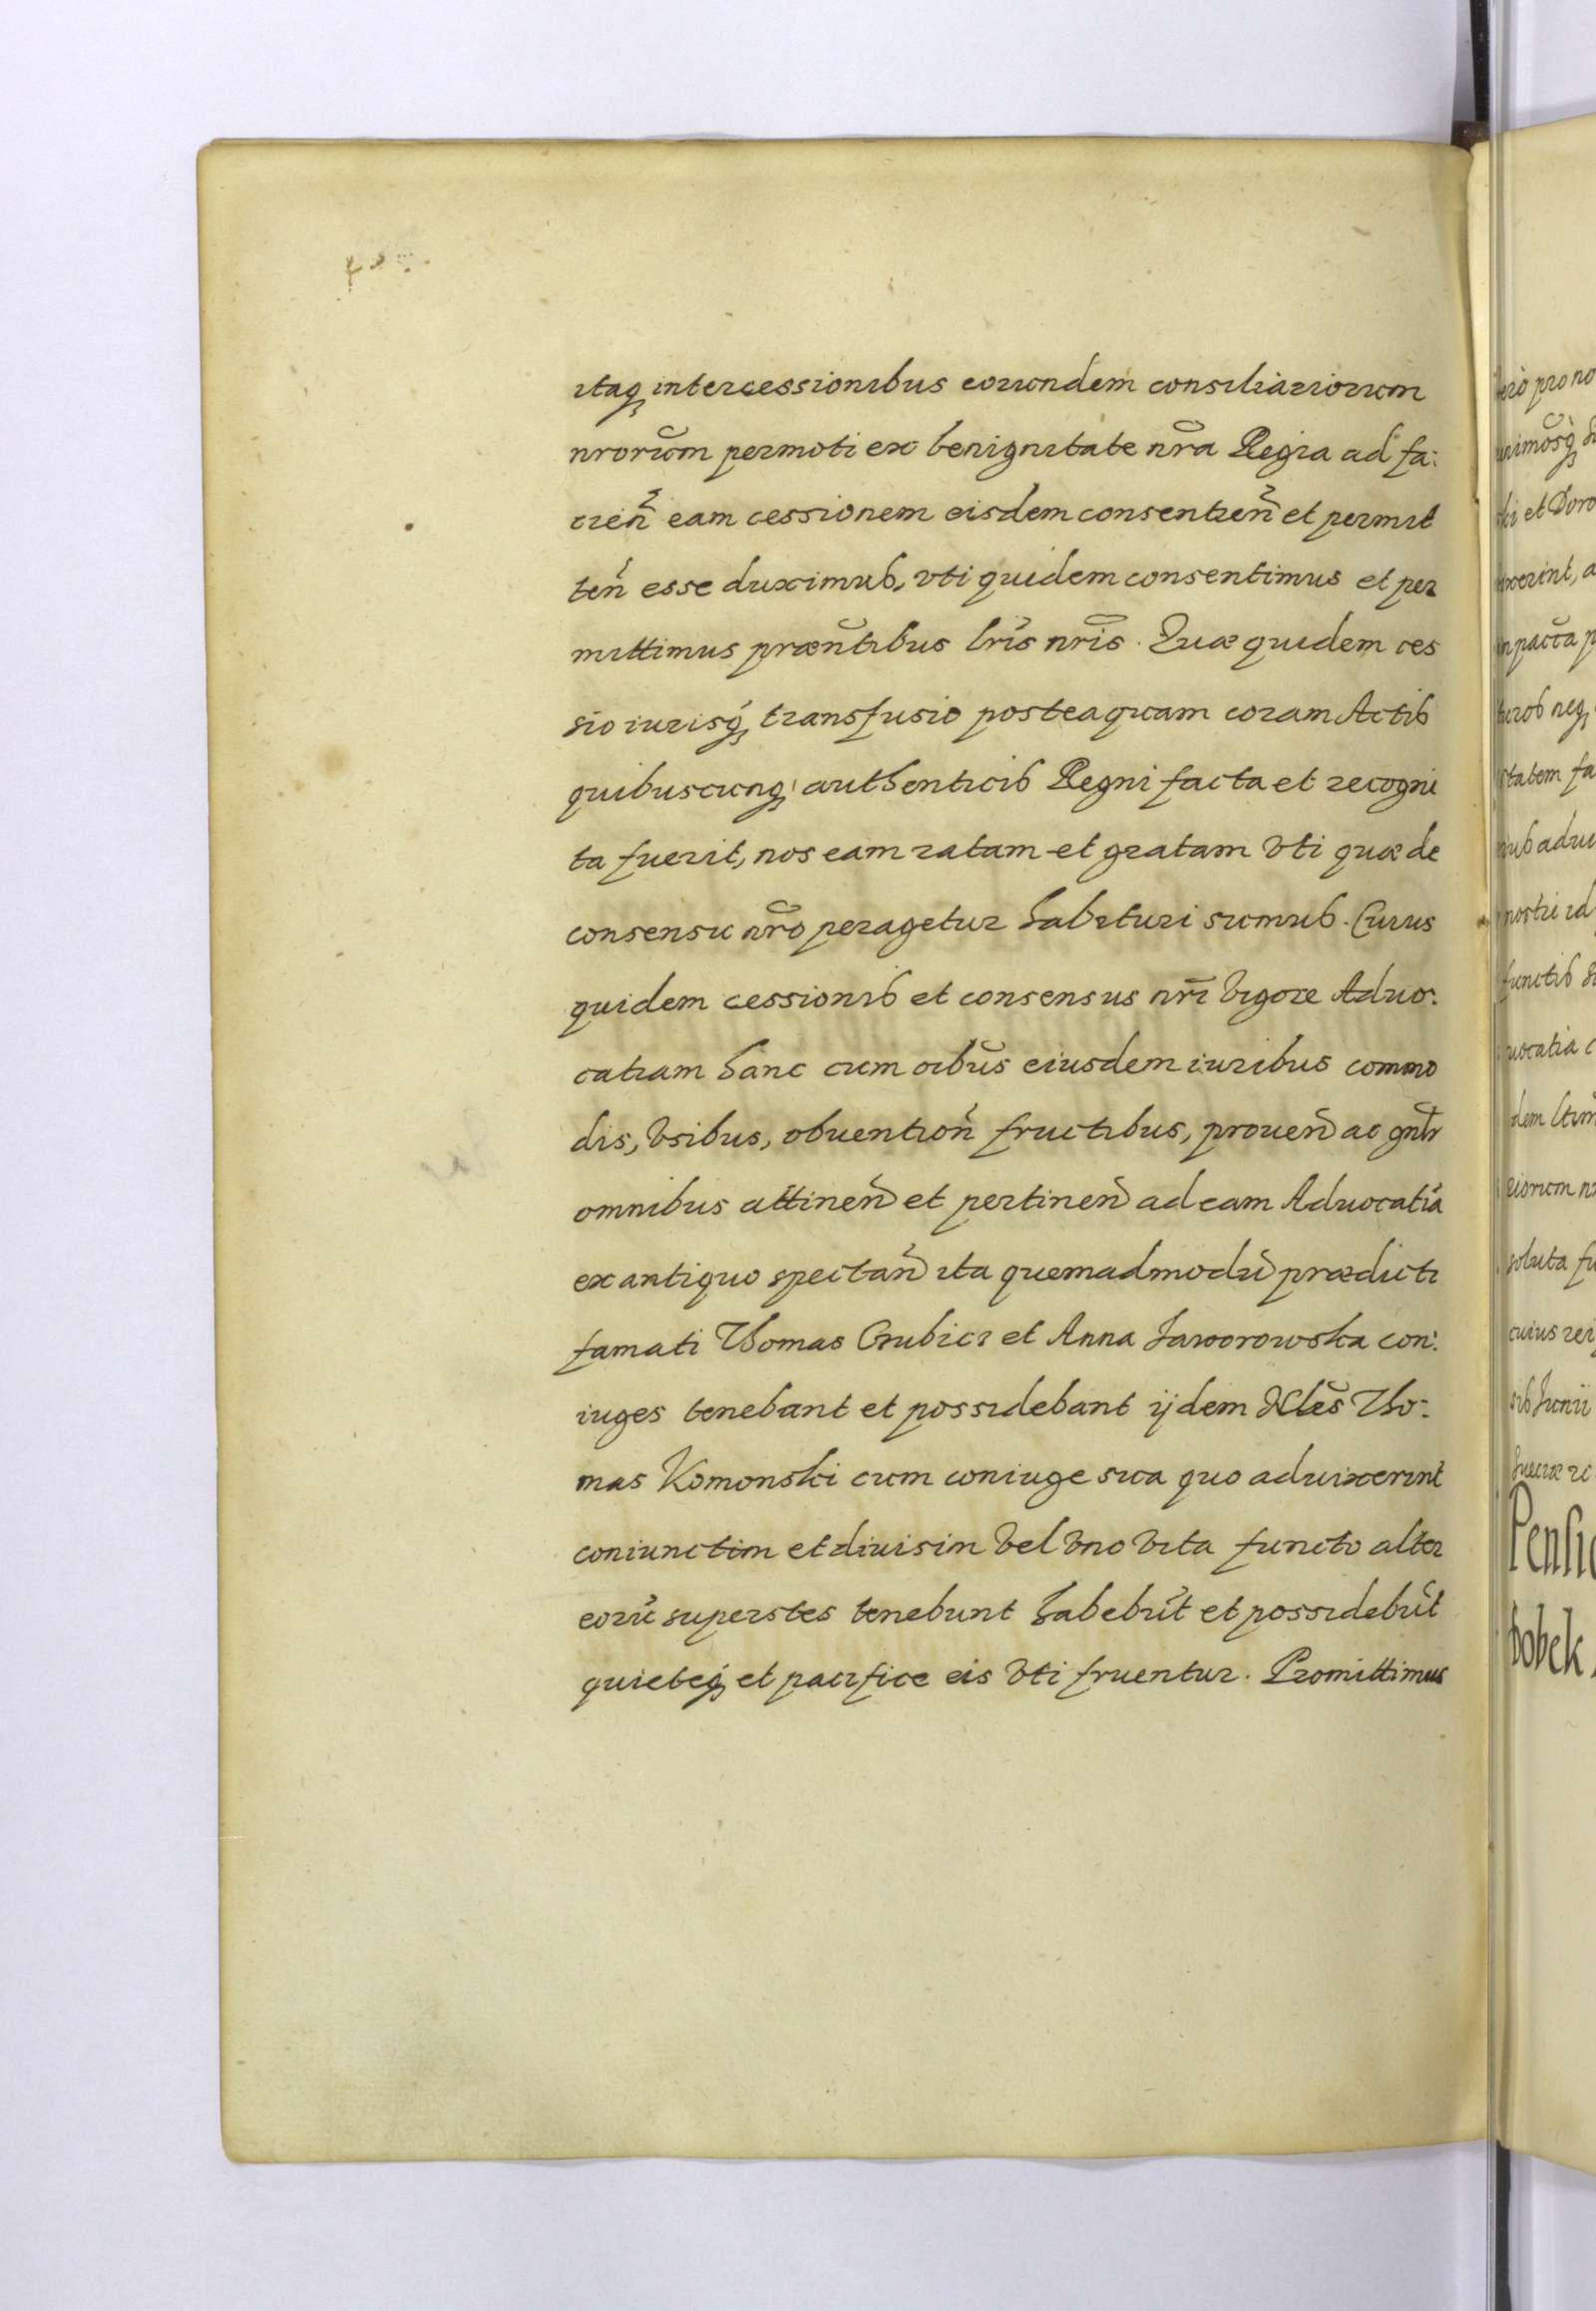 itaq intercessionibus eorundem consiliariorum
nrorum permoti ex benignitate nra Regia ad fa:
cien̄ eam cessionem eisdem consentien̄ et permit
ten̄ esse duximus, vti quidem consentimus et per
mittimus præntibus lris nris. Quæ quidem ces
sio iurisq́ transfusio posteaquam coram Actis
quibuscunq authenticis Regni facta et recogni
ta fuerit, nos eam ratam et gratam vti quæ de
consensu nro peragetur habituri sumus. Cuius
quidem cessionis et consensus nri vigore Aduo:
catiam hanc cum oibus eiusdem iuribus commo
dis, vsibus, obuention̄ fructibus, prouen̄ ac gnlr
omnibus attinen̄ et pertinen̄ ad eam Aduocatiā
ex antiquo spectan̄ ita quemadmodū prædicti
famati Thomas Grubicz et Anna Jaworowska con:
iuges tenebant et possidebant ijdem Nles Tho:
mas Komonski cum coniuge sua quo aduixerint
coniunctim et diuisim vel vno vita functo alter
eorū superstes tenebunt habebūt et possidebūt
quieteq́ et pacifice eis vti fruentur. Promittimus